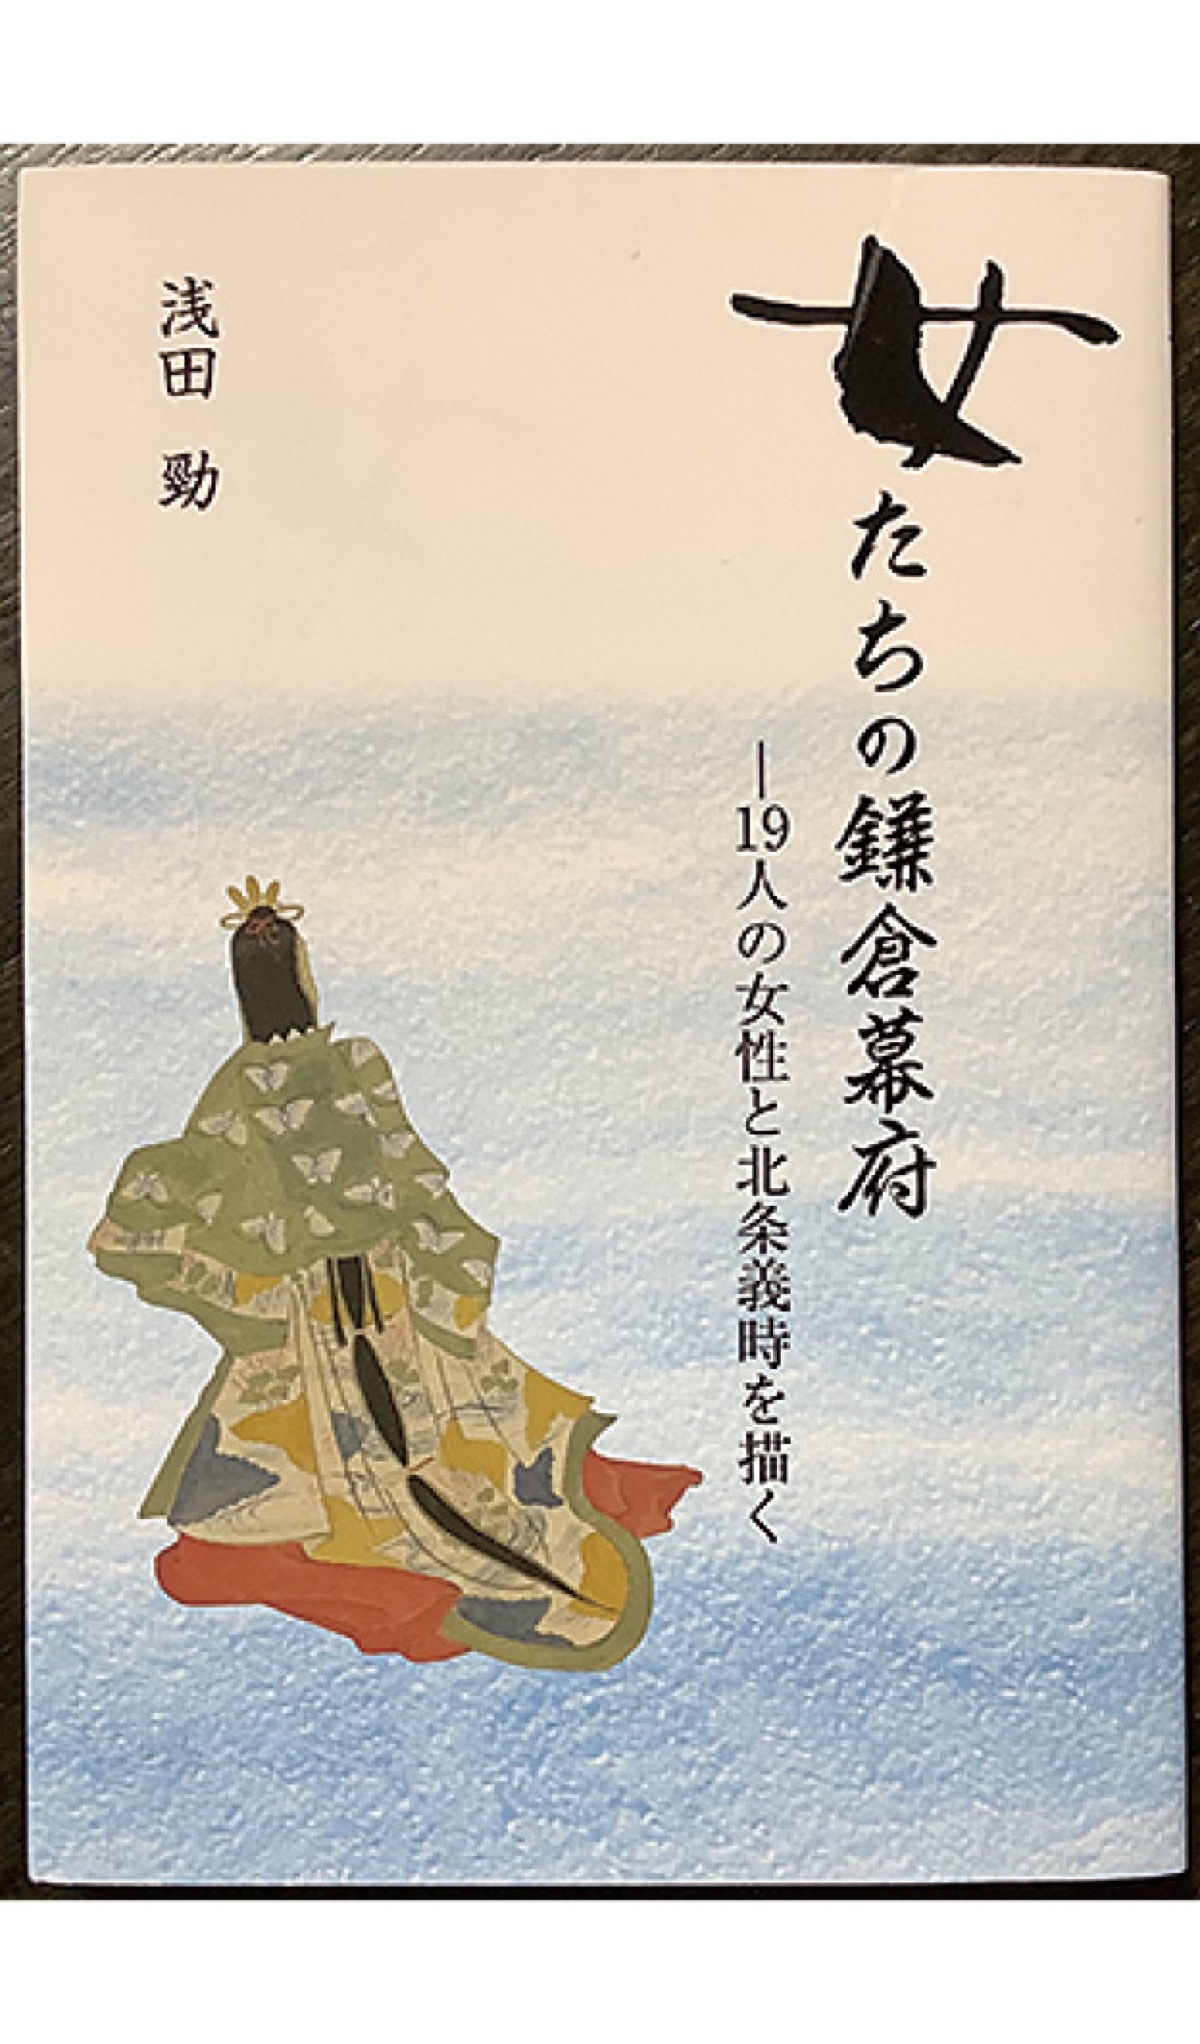 女たちの鎌倉幕府
―19人の女性と北条義時を描く
浅田 勁